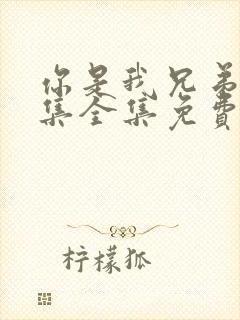 你是我兄弟
集全集免费
柠檬狐